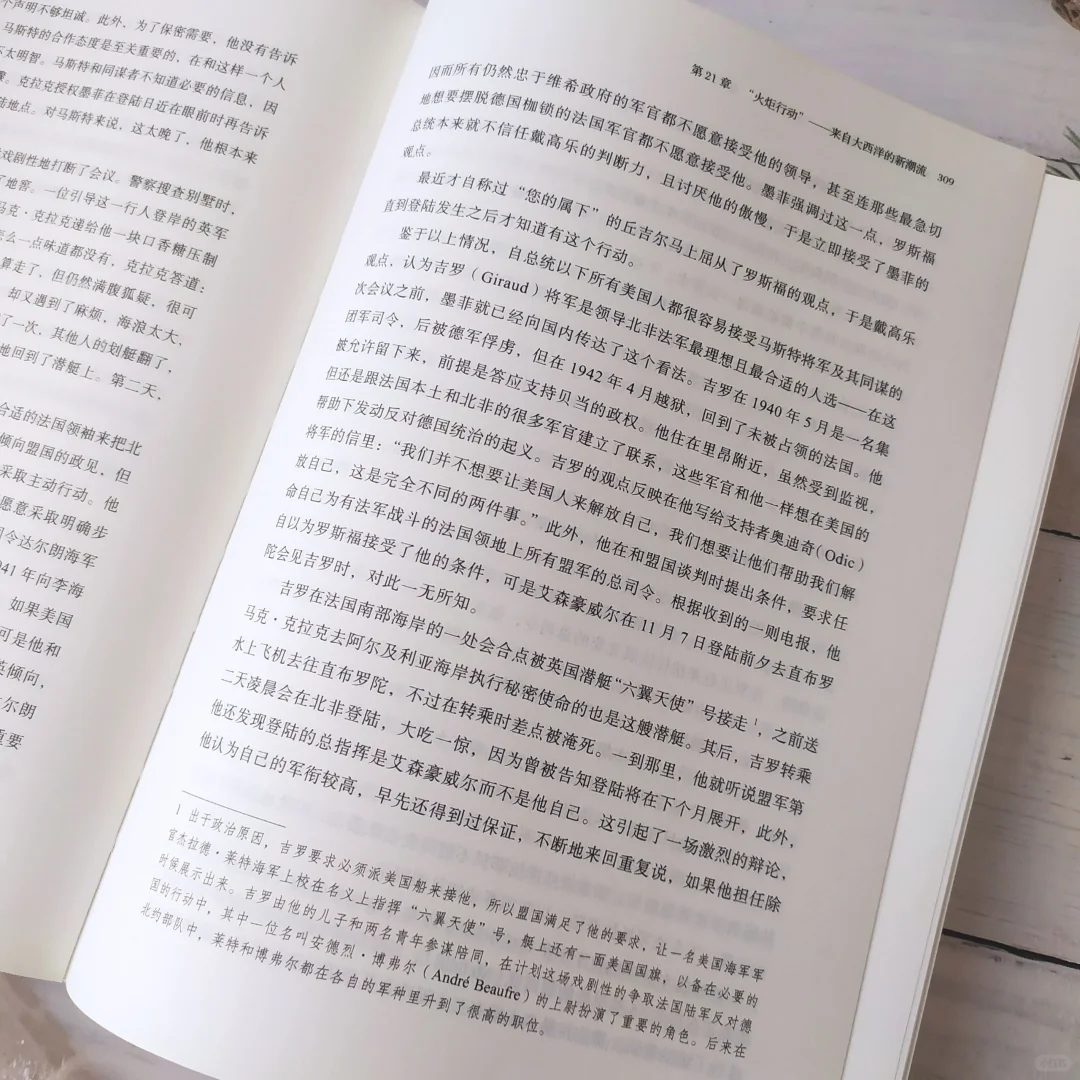 个声明不够坦诚。此外，为了保密需要，他没有告诉
马斯特的合作态度是至关重要的，在和这样一个人
不太明智。马斯特和同谋者不知道必要的信息，因
克拉克授权墨菲在登陆日近在眼前时再告诉
陆地点。对马斯特来说，这太晚了，他根本来
戏剧性地打断了会议。警察搜查别墅时，
了地窖。一位引导这一行人登岸的英军
马克·克拉克递给他一块口香糖压制
怎么一点味道都没有，克拉克答道：
算走了，但仍然满腹狐疑，很可
却又遇到了麻烦，海浪太大，
了一次，其他人的划艇翻了，
地回到了潜艇上。第二天，
合适的法国领袖来把北
倾向盟国的政见，但
采取主动行动。他
愿意采取明确步
司令达尔朗海军
941年向李海
如果美国
可是他和
英倾向，
达尔朗
重要
第21章 “火炬行动”——来自大西洋的新潮流 309
因而所有仍然忠于维希政府的军官都不愿意接受他的领导，甚至连那些最急切
地想要摆脱德国枷锁的法国军官都不愿意接受他。墨菲强调过这一点，罗斯福
总统本来就不信任戴高乐的判断力，且讨厌他的傲慢，于是立即接受了墨菲的
观点。
最近才自称过“您的属下”的丘吉尔马上屈从了罗斯福的观点，于是戴高乐
直到登陆发生之后才知道有这个行动。
鉴于以上情况，自总统以下所有美国人都很容易接受马斯特将军及其同谋的
观点，认为吉罗（Giraud）将军是领导北非法军最理想且最合适的人选——在这
次会议之前，墨菲就已经向国内传达了这个看法。吉罗在1940年5月是一名集
团军司令，后被德军俘虏，但在1942年4月越狱，回到了未被占领的法国。他
被允许留下来，前提是答应支持贝当的政权。他住在里昂附近，虽然受到监视，
但还是跟法国本土和北非的很多军官建立了联系，这些军官和他一样想在美国的
帮助下发动反对德国统治的起义。吉罗的观点反映在他写给支持者奥迪奇（Odic）
将军的信里：“我们并不想要让美国人来解放自己，我们想要让他们帮助我们解
放自己，这是完全不同的两件事。”此外，他在和盟国谈判时提出条件，要求任
命自己为有法军战斗的法国领地上所有盟军的总司令。根据收到的一则电报，他
自以为罗斯福接受了他的条件，可是艾森豪威尔在11月7日登陆前夕去直布罗
陀会见吉罗时，对此一无所知。
吉罗在法国南部海岸的一处会合点被英国潜艇“六翼天使”号接走1，之前送
马克·克拉克去阿尔及利亚海岸执行秘密使命的也是这艘潜艇。其后，吉罗转乘
水上飞机去往直布罗陀，不过在转乘时差点被淹死。一到那里，他就听说盟军第
二天凌晨会在北非登陆，大吃一惊，因为曾被告知登陆将在下个月展开，此外，
他还发现登陆的总指挥是艾森豪威尔而不是他自己。这引起了一场激烈的辩论，
他认为自己的军衔较高，早先还得到过保证，不断地来回重复说，如果他担任除
1 出于政治原因，吉罗要求必须派美国船来接他，所以盟国满足了他的要求，让一名美国海军军
官杰拉德·莱特海军上校在名义上指挥“六翼天使”号，艇上还有一面美国国旗，以备在必要的
时候展示出来。吉罗由他的儿子和两名青年参谋陪同，在计划这场戏剧性的争取法国陆军反对德
国的行动中，其中一位名叫安德烈·博弗尔（André Beaufre）的上尉扮演了重要的角色。后来在
北约部队中，莱特和博弗尔都在各自的军种里升到了很高的职位。